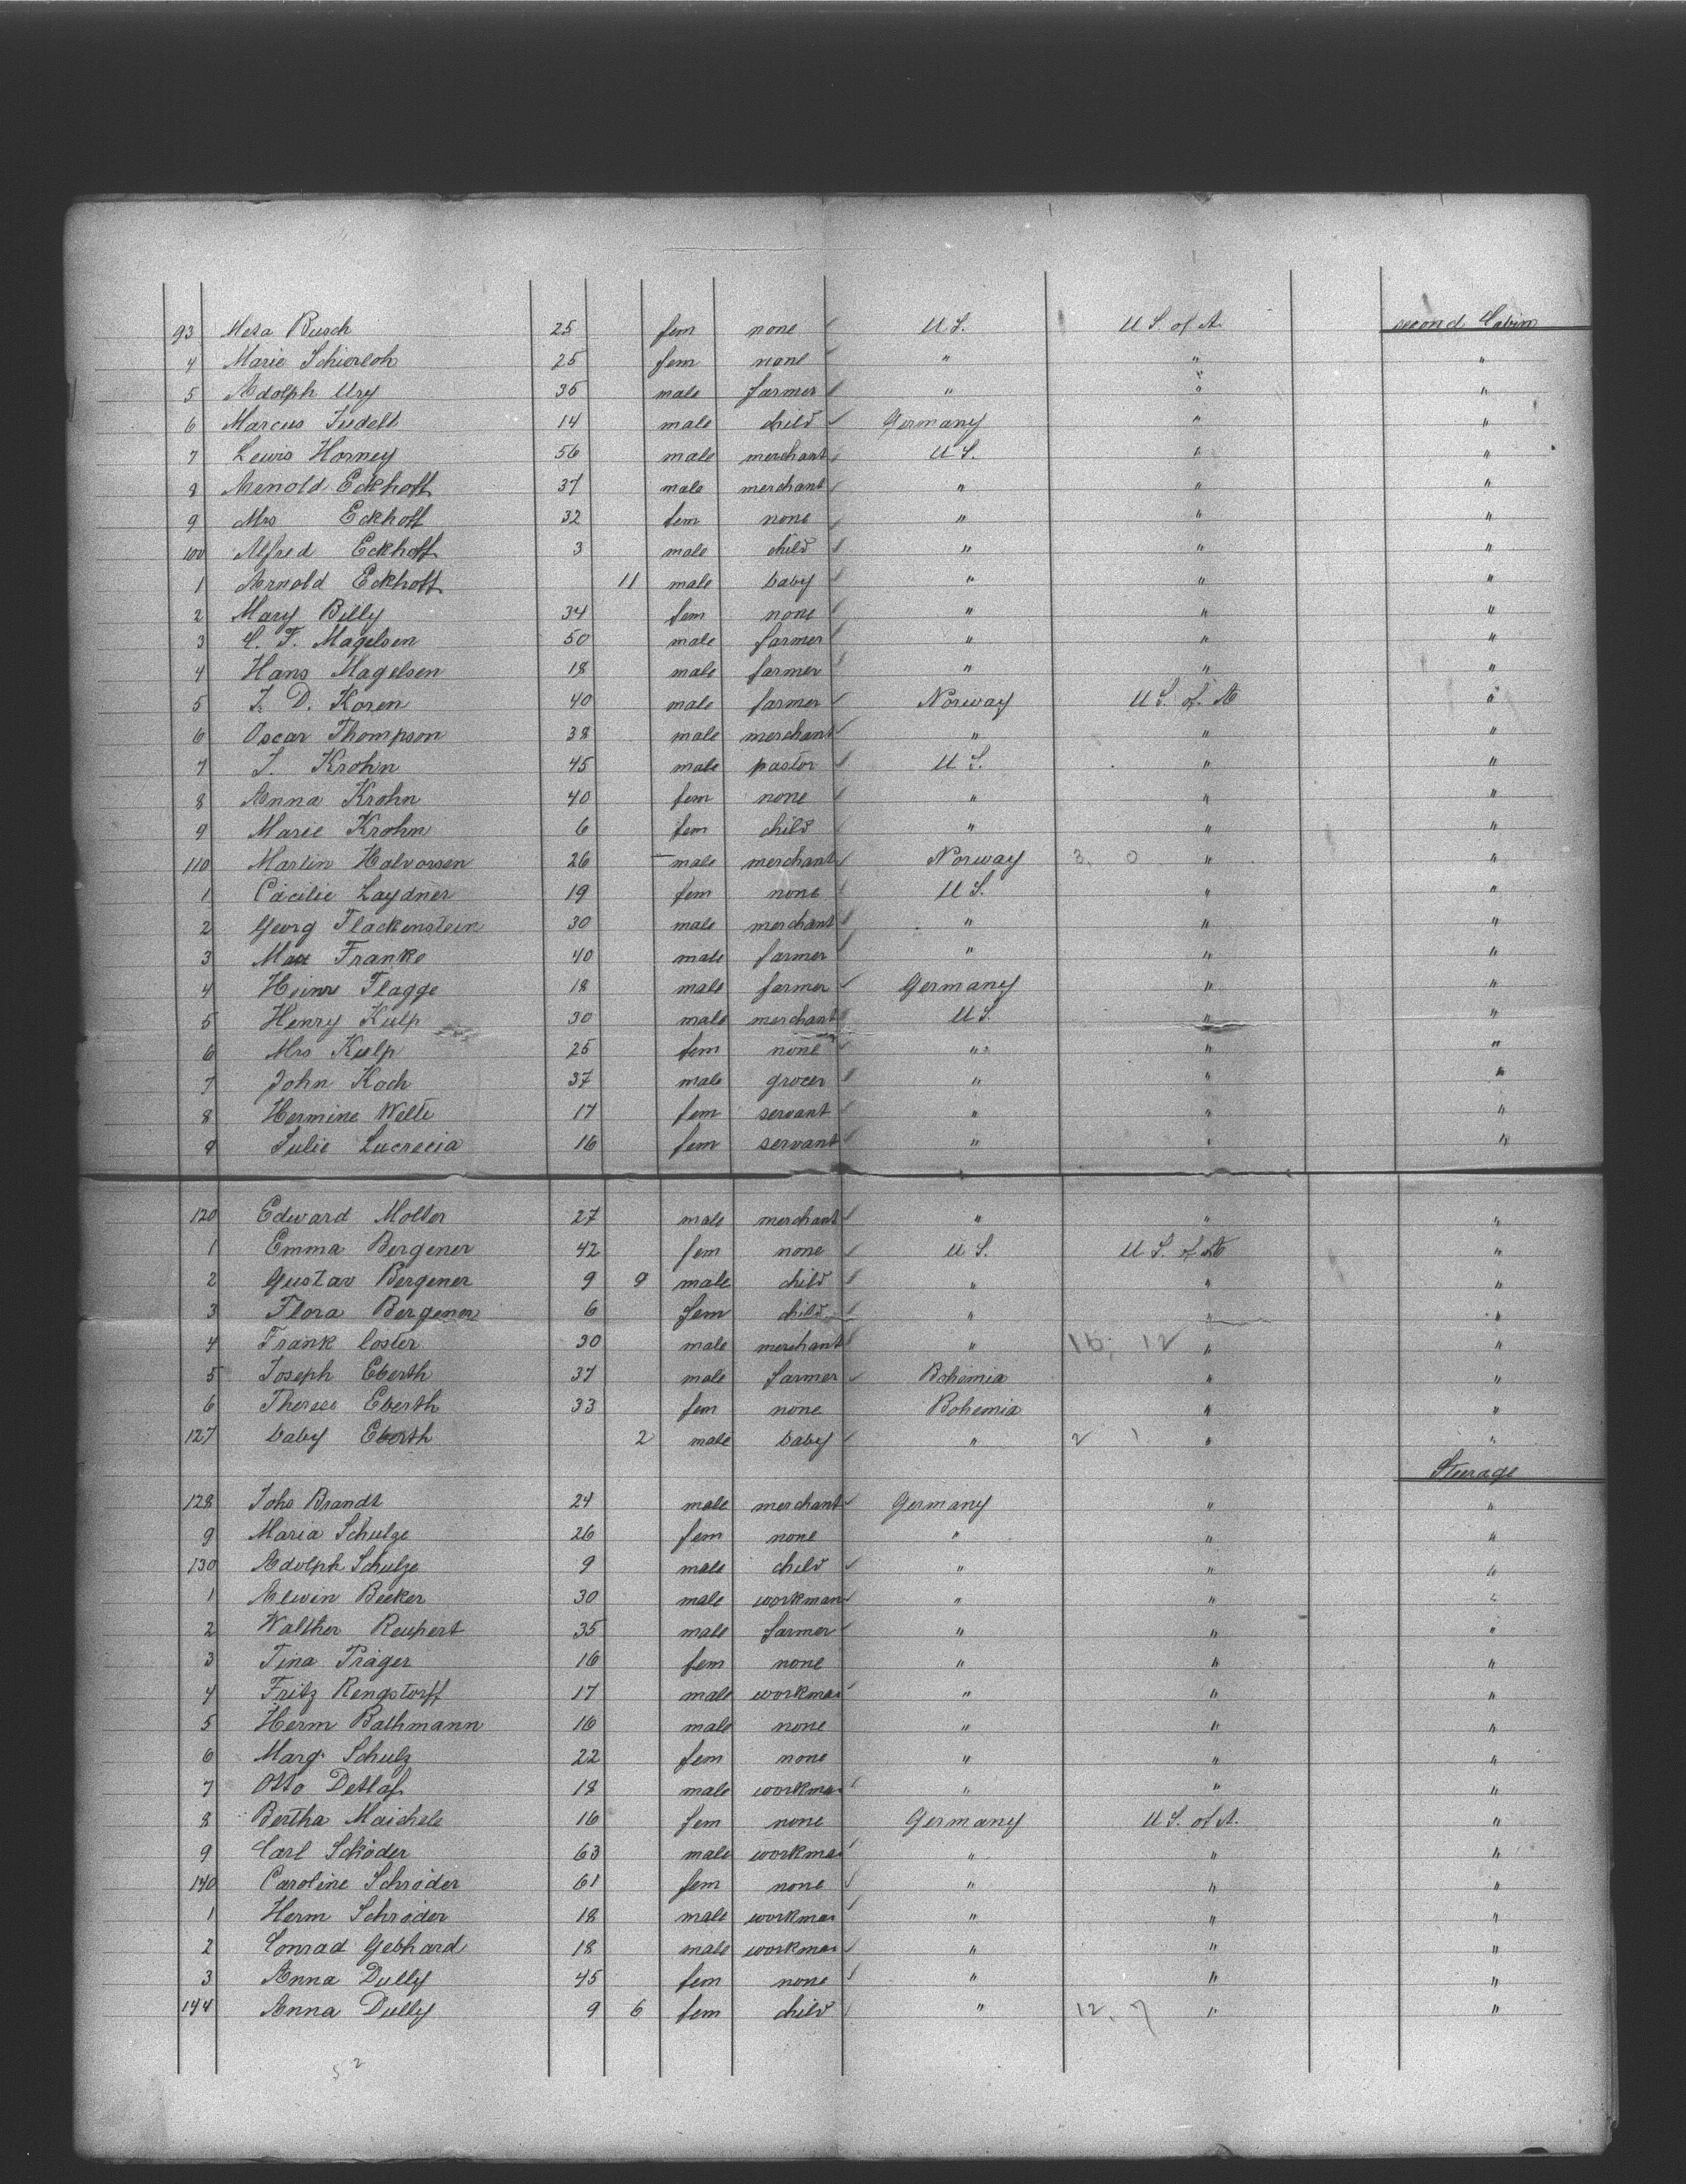 93 Meta Busch 25 fem none U.S. U.S. of A. second Cabin
4 Marie Schierloh 25 fem none " " "
5 Adolph Ury 35 male farmer " " "
6 Marcus Tudelt 14 male child Germany " "
7 Lewis Horney 56 male merchant U.S. " "
8 Arnold Eckhoff 37 male merchant " " "
9 Mrs Eckhoff 32 fem none " " "
100 Alfred Eckhoff 3 male child " " "
1 Arnold Eckhoff 11 male baby " " "
2 Mary Billy 34 fem none " " "
3 F. Magelsen 50 male farmer " " "
4 Hans Magelsen 18 male farmer " " "
5 J. D. Koren 40 male farmer Norway U.S. of A "
6 Oscar Thompson 38 male merchant " " "
7 J. Krohn 45 male pastor U.S. " "
8 Anna Krohn 40 fem none " " "
9 Marie Krohn 6 fem child " " "
110 Martin Halvorsen 26 male merchant Norway 3, 0 " "
1 Cäcilie Laydner 19 fem none U.S. " "
2 Georg Flackenstein 30 male merchant " " "
3 Max Franke 40 male farmer " " "
4 Heinr Flagge 18 male farmer Germany " "
5 Henry Kulp 30 male merchant U.S. " "
6 Mrs Kulp 25 fem none " " "
7 John Koch 37 male grocer " " "
8 Hermine Welte 17 fem servant " " "
9 Julie Lucrecia 16 fem servant " " "
120 Edward Molter 27 male merchant " " "
1 Emma Bergener 42 fem none U.S. U.S. of A "
2 Gustav Bergener 9 9 male child " " "
3 Flora Bergener 6 fem child " " "
4 Frank Coster 30 male merchant " 16, 12 " "
5 Joseph Eberth 37 male farmer Bohemia " "
6 Therese Eberth 33 fem none Bohemia " "
127 baby Eberth 2 male baby " 2 1 " "
Steerage
128 Johs Brandt 24 male merchant Germany " "
9 Maria Schulze 26 fem none " " "
130 Adolph Schulze 9 male child " " "
1 Alwin Becker 30 male workman " " "
2 Walther Reupert 35 male farmer " " "
3 Tina Präger 16 fem none " " "
4 Fritz Rengstorff 17 male workman " " "
5 Herm Bathmann 16 male none " " "
6 Marg. Schulz 22 fem none " " "
7 Otto Detlaf 18 male workman " " "
8 Bertha Maichele 16 fem none Germany U.S. of A. "
9 Carl Schöder 63 male workman " " "
140 Caroline Schröder 61 fem none " " "
1 Herm Schröder 18 male workman " " "
2 Conrad Gebhard 18 male workman " " "
3 Anna Dully 45 fem none " " "
144 Anna Dully 9 6 fem child " 12, 7 " "
52